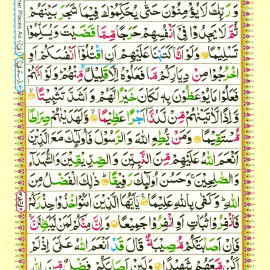 وَرَبِّكَ لَا يُؤْمِنُونَ حَتّٰى يُحَكِّمُوْكَ فِيْمَا شَجَرَ بَيْنَهُمْ
ثُمَّ لَا يَجِدُوْا فِىْٓ اَنْفُسِهِمْ حَرَجًا مِّمَّا قَضَيْتَ وَيُسَلِّمُوْا
تَسْلِيْمًا وَلَوْ اَنَّا كَتَبْنَا عَلَيْهِمْ اَنِ اقْتُلُوْٓا اَنْفُسَكُمْ اَوِ
اخْرُجُوْا مِنْ دِيَارِكُمْ مَّا فَعَلُوْهُ اِلَّا قَلِيْلٌ مِّنْهُمْ وَلَوْ اَنَّهُمْ
فَعَلُوْا مَا يُوْعَظُوْنَ بِهٖ لَكَانَ خَيْرًا لَّهُمْ وَاَشَدَّ تَثْبِيْتًا
وَّاِذًا لَّاٰتَيْنٰهُمْ مِّنْ لَّدُنَّآ اَجْرًا عَظِيْمًا وَّلَهَدَيْنٰهُمْ صِرَاطًا
مُّسْتَقِيْمًا وَمَنْ يُّطِعِ اللّٰهَ وَالرَّسُوْلَ فَاُولٰٓئِكَ مَعَ الَّذِيْنَ
اَنْعَمَ اللّٰهُ عَلَيْهِمْ مِّنَ النَّبِيّٖنَ وَالصِّدِّيْقِيْنَ وَالشُّهَدَآءِ
وَالصّٰلِحِيْنَ وَحَسُنَ اُولٰٓئِكَ رَفِيْقًا ذٰلِكَ الْفَضْلُ مِنَ
اللّٰهِ وَكَفٰى بِاللّٰهِ عَلِيْمًا يٰٓاَيُّهَا الَّذِيْنَ اٰمَنُوْا خُذُوْا حِذْرَكُمْ
فَانْفِرُوْا ثُبَاتٍ اَوِ انْفِرُوْا جَمِيْعًا وَاِنَّ مِنْكُمْ لَمَنْ لَّيُبَطِّئَنَّ
فَاِنْ اَصَابَتْكُمْ مُّصِيْبَةٌ قَالَ قَدْ اَنْعَمَ اللّٰهُ عَلَىَّ اِذْ لَمْ
اَكُنْ مَّعَهُمْ شَهِيْدًا وَلَئِنْ اَصَابَكُمْ فَضْلٌ مِّنَ